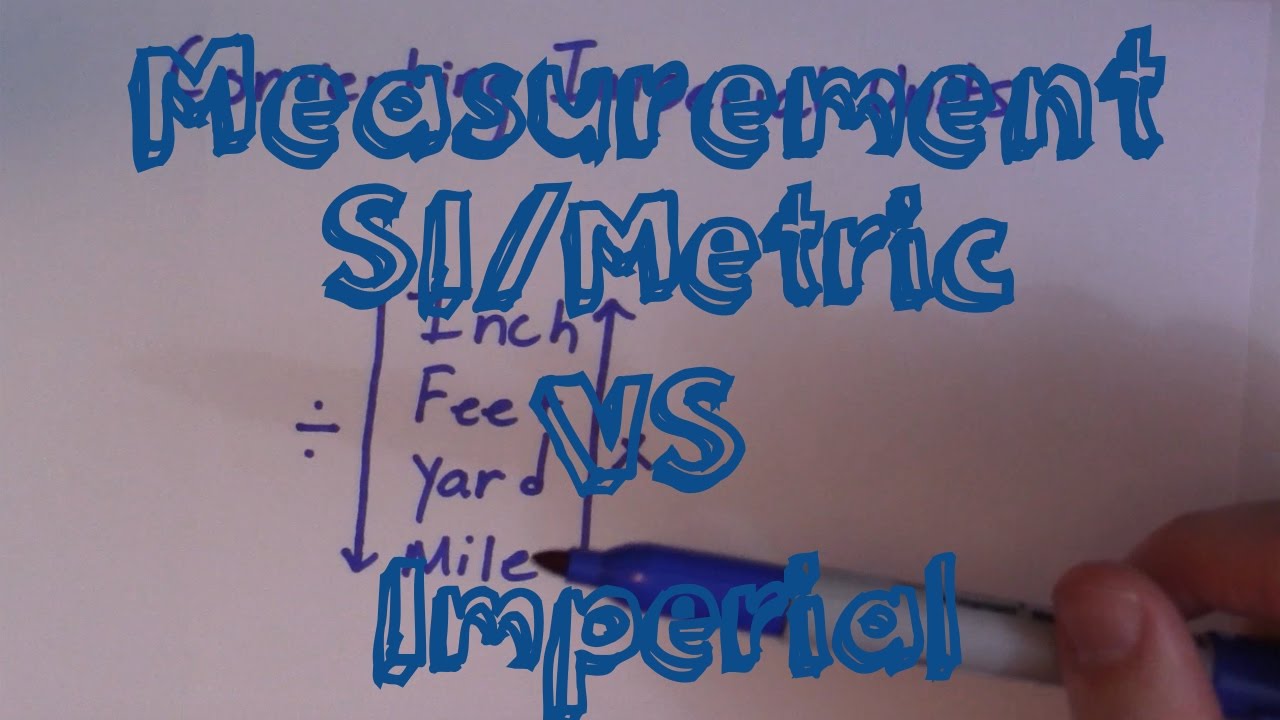 Converting Imperial Units
Measurement
SI/Metric
Inch
Feet
VS
÷
x
Yard
Mile
Imperial